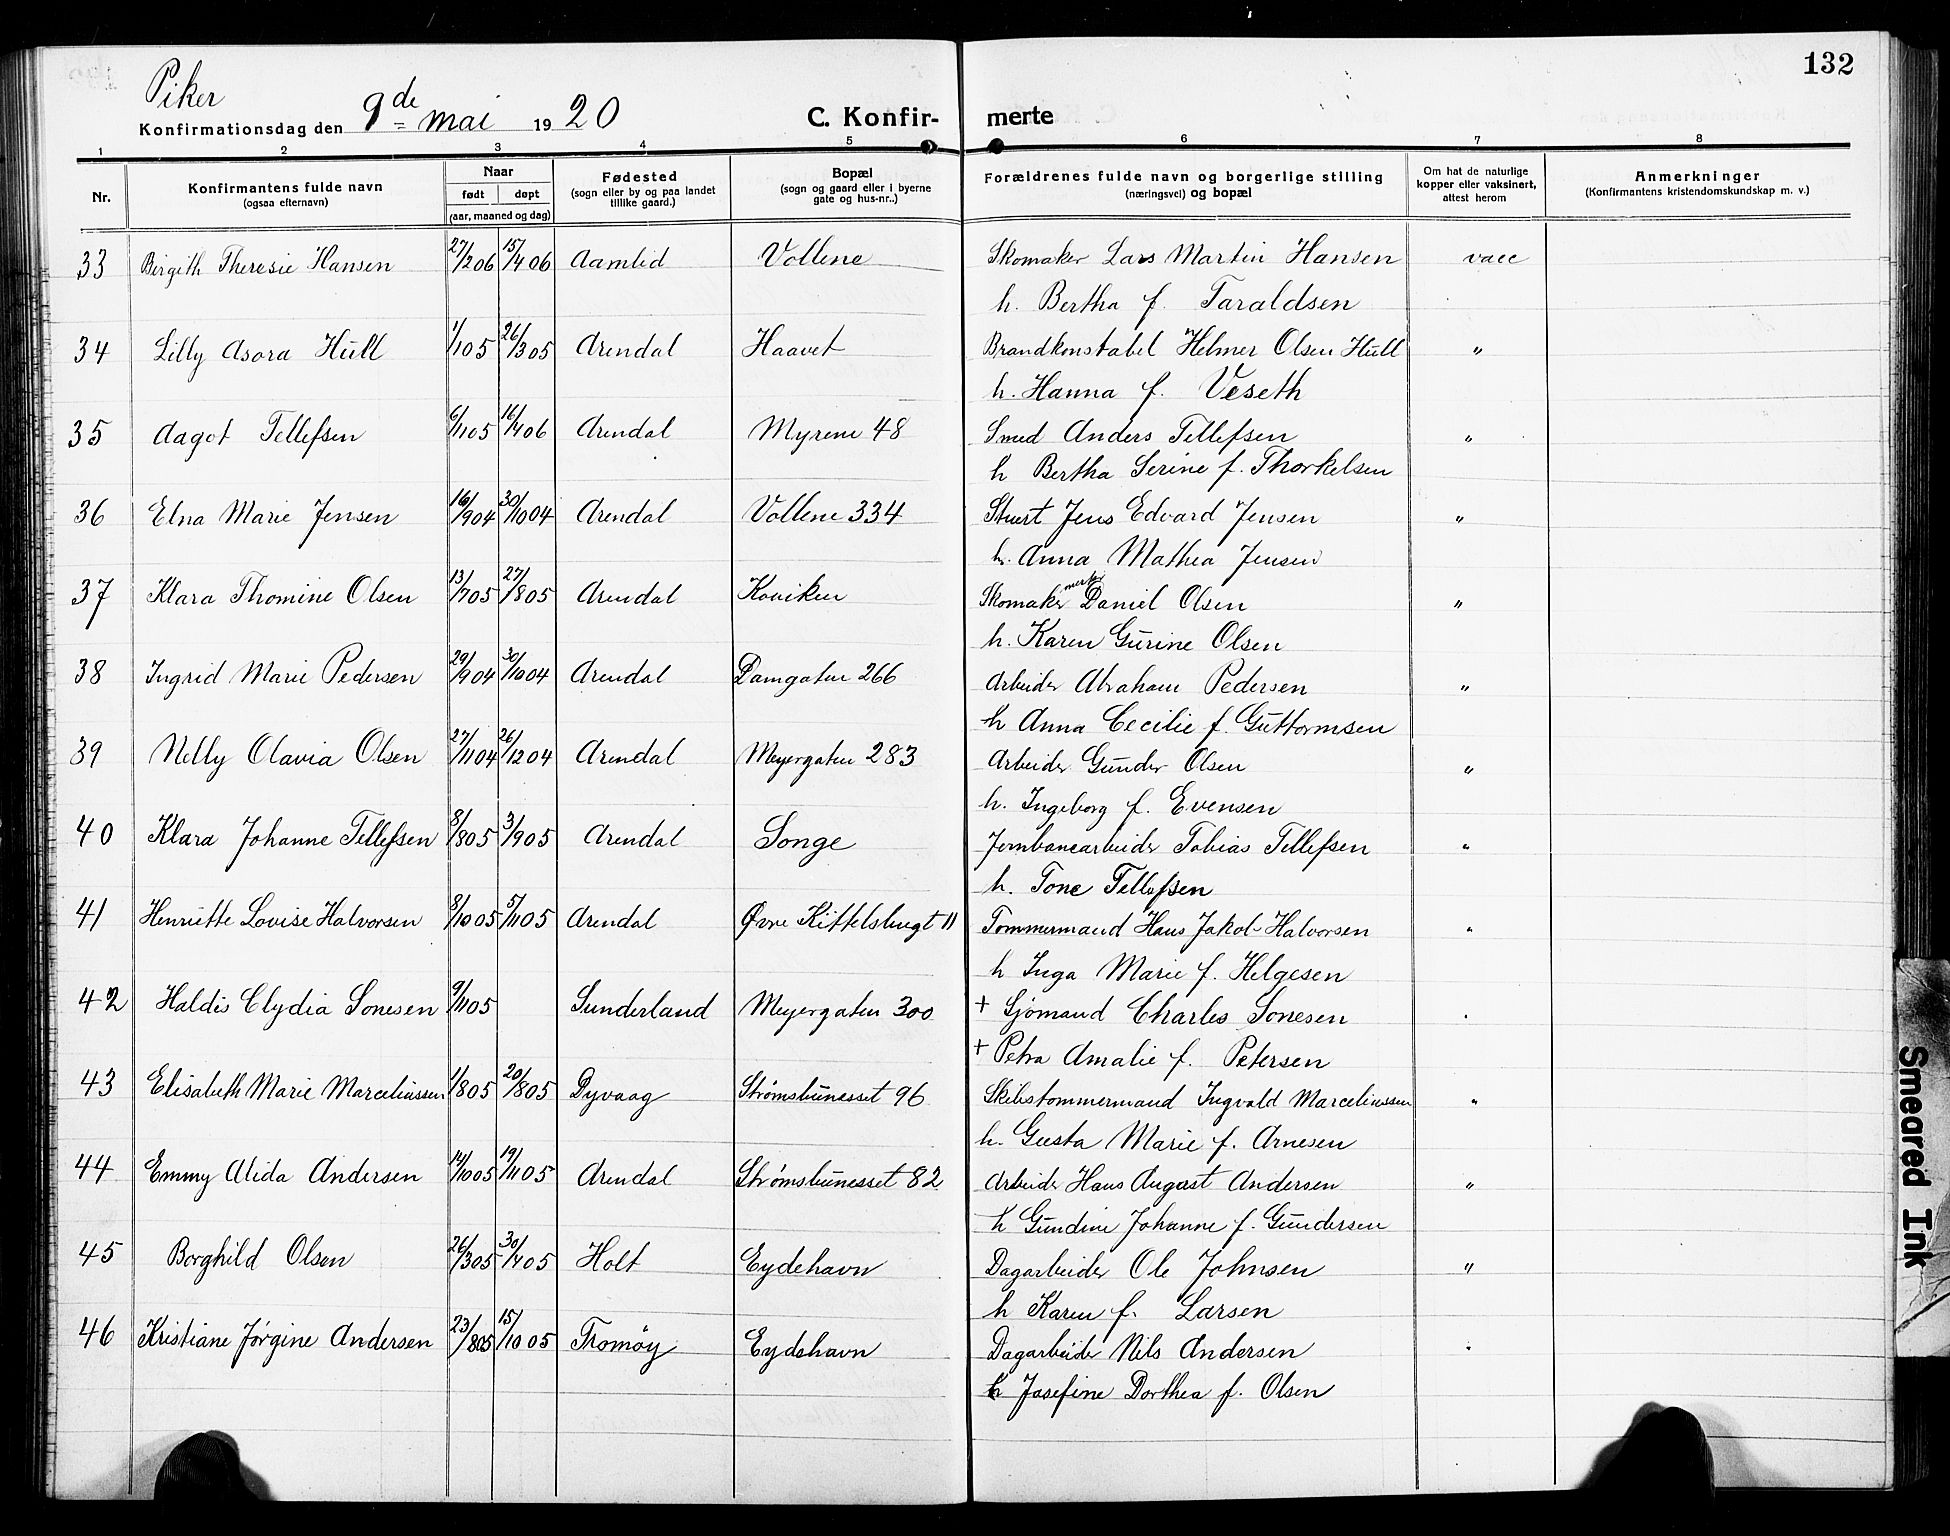 132
Piker
Konfirmationsdag den 9de mai 1920
C. Konfir- merte
1 2 3 4 5 6 7 8
Nr.
Konfirmantens fulde navn
(ogsaa efternavn)
Naar
født døpt
(aar, maaned og dag)
Fødested
(sogn eller by og paa landet
tillike gaard.)
Bopæl
(sogn og gaard eller i byerne
gate og hus-nr..)
Forældrenes fulde navn og borgerlige stilling
(næringsvei) og bopæl
Om hat de naturlige
kopper eller vaksinert,
attest herom
Anmerkninger
(Konfirmantens kristendomskundskap m. v.)
33 Birgith Theresie Hansen 27/2 06 15/4 06 Aamlid Vollene Skomaker Lars Martin Hansen vacc
h. Bertha f. Taraldsen
34 Lilly Asora Hull 1/1 05 26/3 05 Arendal Haavet Brandkonstabel Helmer Olsen Hull "
h. Hanna f. Veseth
35 Aagot Tellefsen 6/11 05 16/4 06 Arendal Myrene 48 Smed Anders Tellefsen "
h Bertha Serine f. Thorkelsen
36 Elna Marie Jensen 16/9 04 30/10 04 Arendal Vollene 334 Stuert Jens Edvard Jensen "
h. Anna Mathea Jensen
37 Klara Thomine Olsen 13/7 05 27/8 05 Arendal Kaviken Skomakermester Daniel Olsen "
h. Karen Gurine Olsen
38 Ingrid Marie Pedersen 29/9 04 30/10 04 Arendal Damgaten 266 Arbeider Abraham Pedersen "
h Anna Cecilie f. Guttormsen
39 Nelly Olavia Olsen 27/11 04 26/12 04 Arendal Meyergaten 283 Arbeider Gunder Olsen "
h. Ingeborg f. Evensen
40 Klara Johanne Tellefsen 8/8 05 3/9 05 Arendal Songe Jernbanearbeider Tobias Tellefsen "
h. Tone Tellefsen
41 Henriette Lovise Halvorsen 8/10 05 5/11 05 Arendal Øvre Kittelsbugt 11 Tømmermand Hans Jakob Halvorsen "
h Inga Marie f. Helgesen
42 Haldis Clydia Sonesen 9/11 05 Sunderland Meyergaten 300 + Sjømand Charles Sonesen "
+ Petra Amalie f. Petersen
43 Elisabeth Marie Marceliussen 1/8 05 20/8 05 Dyvaag Strømsbunesset 96 Skibstømmermand Ingvald Marceliussen "
h. Gusta Marie f. Arnesen
44 Emmy Alida Andersen 14/10 05 19/11 05 Arendal Strømsbunesset 82 Arbeider Hans August Andersen "
h Gundine Johanne f. Gundersen
45 Borghild Olsen 26/3 05 30/4 05 Holt Eydehavn Dagarbeider Ole Johnsen "
h Karen f. Larsen
46 Kristiane Jørgine Andersen 23/8 05 15/10 05 Tromøy Eydehavn Dagarbeider Nils Andersen "
h Josefine Dorthea f. Olsen
Smeared Ink